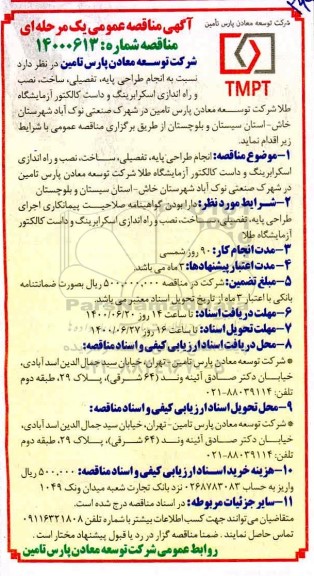 شرکت توسعه معادن پارس تامین
TMPT
آگهی مناقصه عمومی یک مرحله ای
مناقصه شماره: ۱۴۰۰۰۶۱۳
شرکت توسعه معادن پارس تامین در نظر دارد
نسبت به انجام طراحی پایه، تفصیلی، ساخت، نصب
و راه اندازی اسکرابرینگ و داست کالکتور آزمایشگاه
طلا شرکت توسعه معادن پارس تامین در شهرک صنعتی نوک آباد شهرستان
خاش-استان سیستان و بلوچستان از طریق برگزاری مناقصه عمومی با شرایط
زیر اقدام نماید.
۱-موضوع مناقصه: انجام طراحی پایه، تفصیلی، ساخت، نصب و راه اندازی
اسکرابرینگ و داست کالکتور آزمایشگاه طلا شرکت توسعه معادن پارس تامین
در شهرک صنعتی نوک آباد شهرستان خاش-استان سیستان و بلوچستان
۲-شرایط مورد نظر: دارا بودن گواهینامه صلاحیت پیمانکاری اجرای
طراحی پایه، تفصیلی، ساخت، نصب و راه اندازی اسکرابرینگ و داست کالکتور
آزمایشگاه طلا
۳-مدت انجام کار: ۹۰ روز شمسی
۴-مدت اعتبار پیشنهادها: ۳ ماه می باشد.
۵-مبلغ تضمین: شرکت در مناقصه ۵۰۰,۰۰۰,۰۰۰ ریال بصورت ضمانتنامه
بانکی با اعتبار ۳ ماه از تاریخ تحویل اسناد معتبر می باشد.
۶-مهلت دریافت اسناد: تا ساعت ۱۴ روز ۱۴۰۰/۰۶/۲۰
۷-مهلت تحویل اسناد: تا ساعت ۱۶ روز ۱۴۰۰/۰۶/۲۷
۸-محل دریافت اسناد ارزیابی کیفی و اسناد مناقصه:
* شرکت توسعه معادن پارس تامین-تهران، خیابان سید جمال الدین اسدآبادی،
خیابان دکتر صادق آئینه وند (۶۴ شرقی)، پلاک ۲۹، طبقه دوم
تلفن: ۸۸۰۳۹۱۱۴-۰۲۱
۹-محل تحویل اسناد ارزیابی کیفی و اسناد مناقصه:
* شرکت توسعه معادن پارس تامین-تهران، خیابان سید جمال الدین اسدآبادی،
خیابان دکتر صادق آئینه وند (۶۴ شرقی)، پلاک ۲۹، طبقه دوم
تلفن: ۸۸۰۳۹۱۱۴-۰۲۱
۱۰-هزینه خرید اسناد ارزیابی کیفی و اسناد مناقصه: ۵۰۰,۰۰۰ ریال
واریز به حساب ۰۲۶۸۷۸۳۰۸۳ نزد بانک تجارت شعبه میدان ونک ۱۰۴۹
۱۱-سایر جزئیات مربوطه: در اسناد مناقصه درج شده است.
متقاضیان می توانند جهت کسب اطلاعات بیشتر با شماره تلفن ۰۹۱۱۶۳۲۱۸۰۸
تماس حاصل نمایند. ضمنا مناقصه گزار در رد یا قبول پیشنهاد مختار است.
روابط عمومی شرکت توسعه معادن پارس تامین